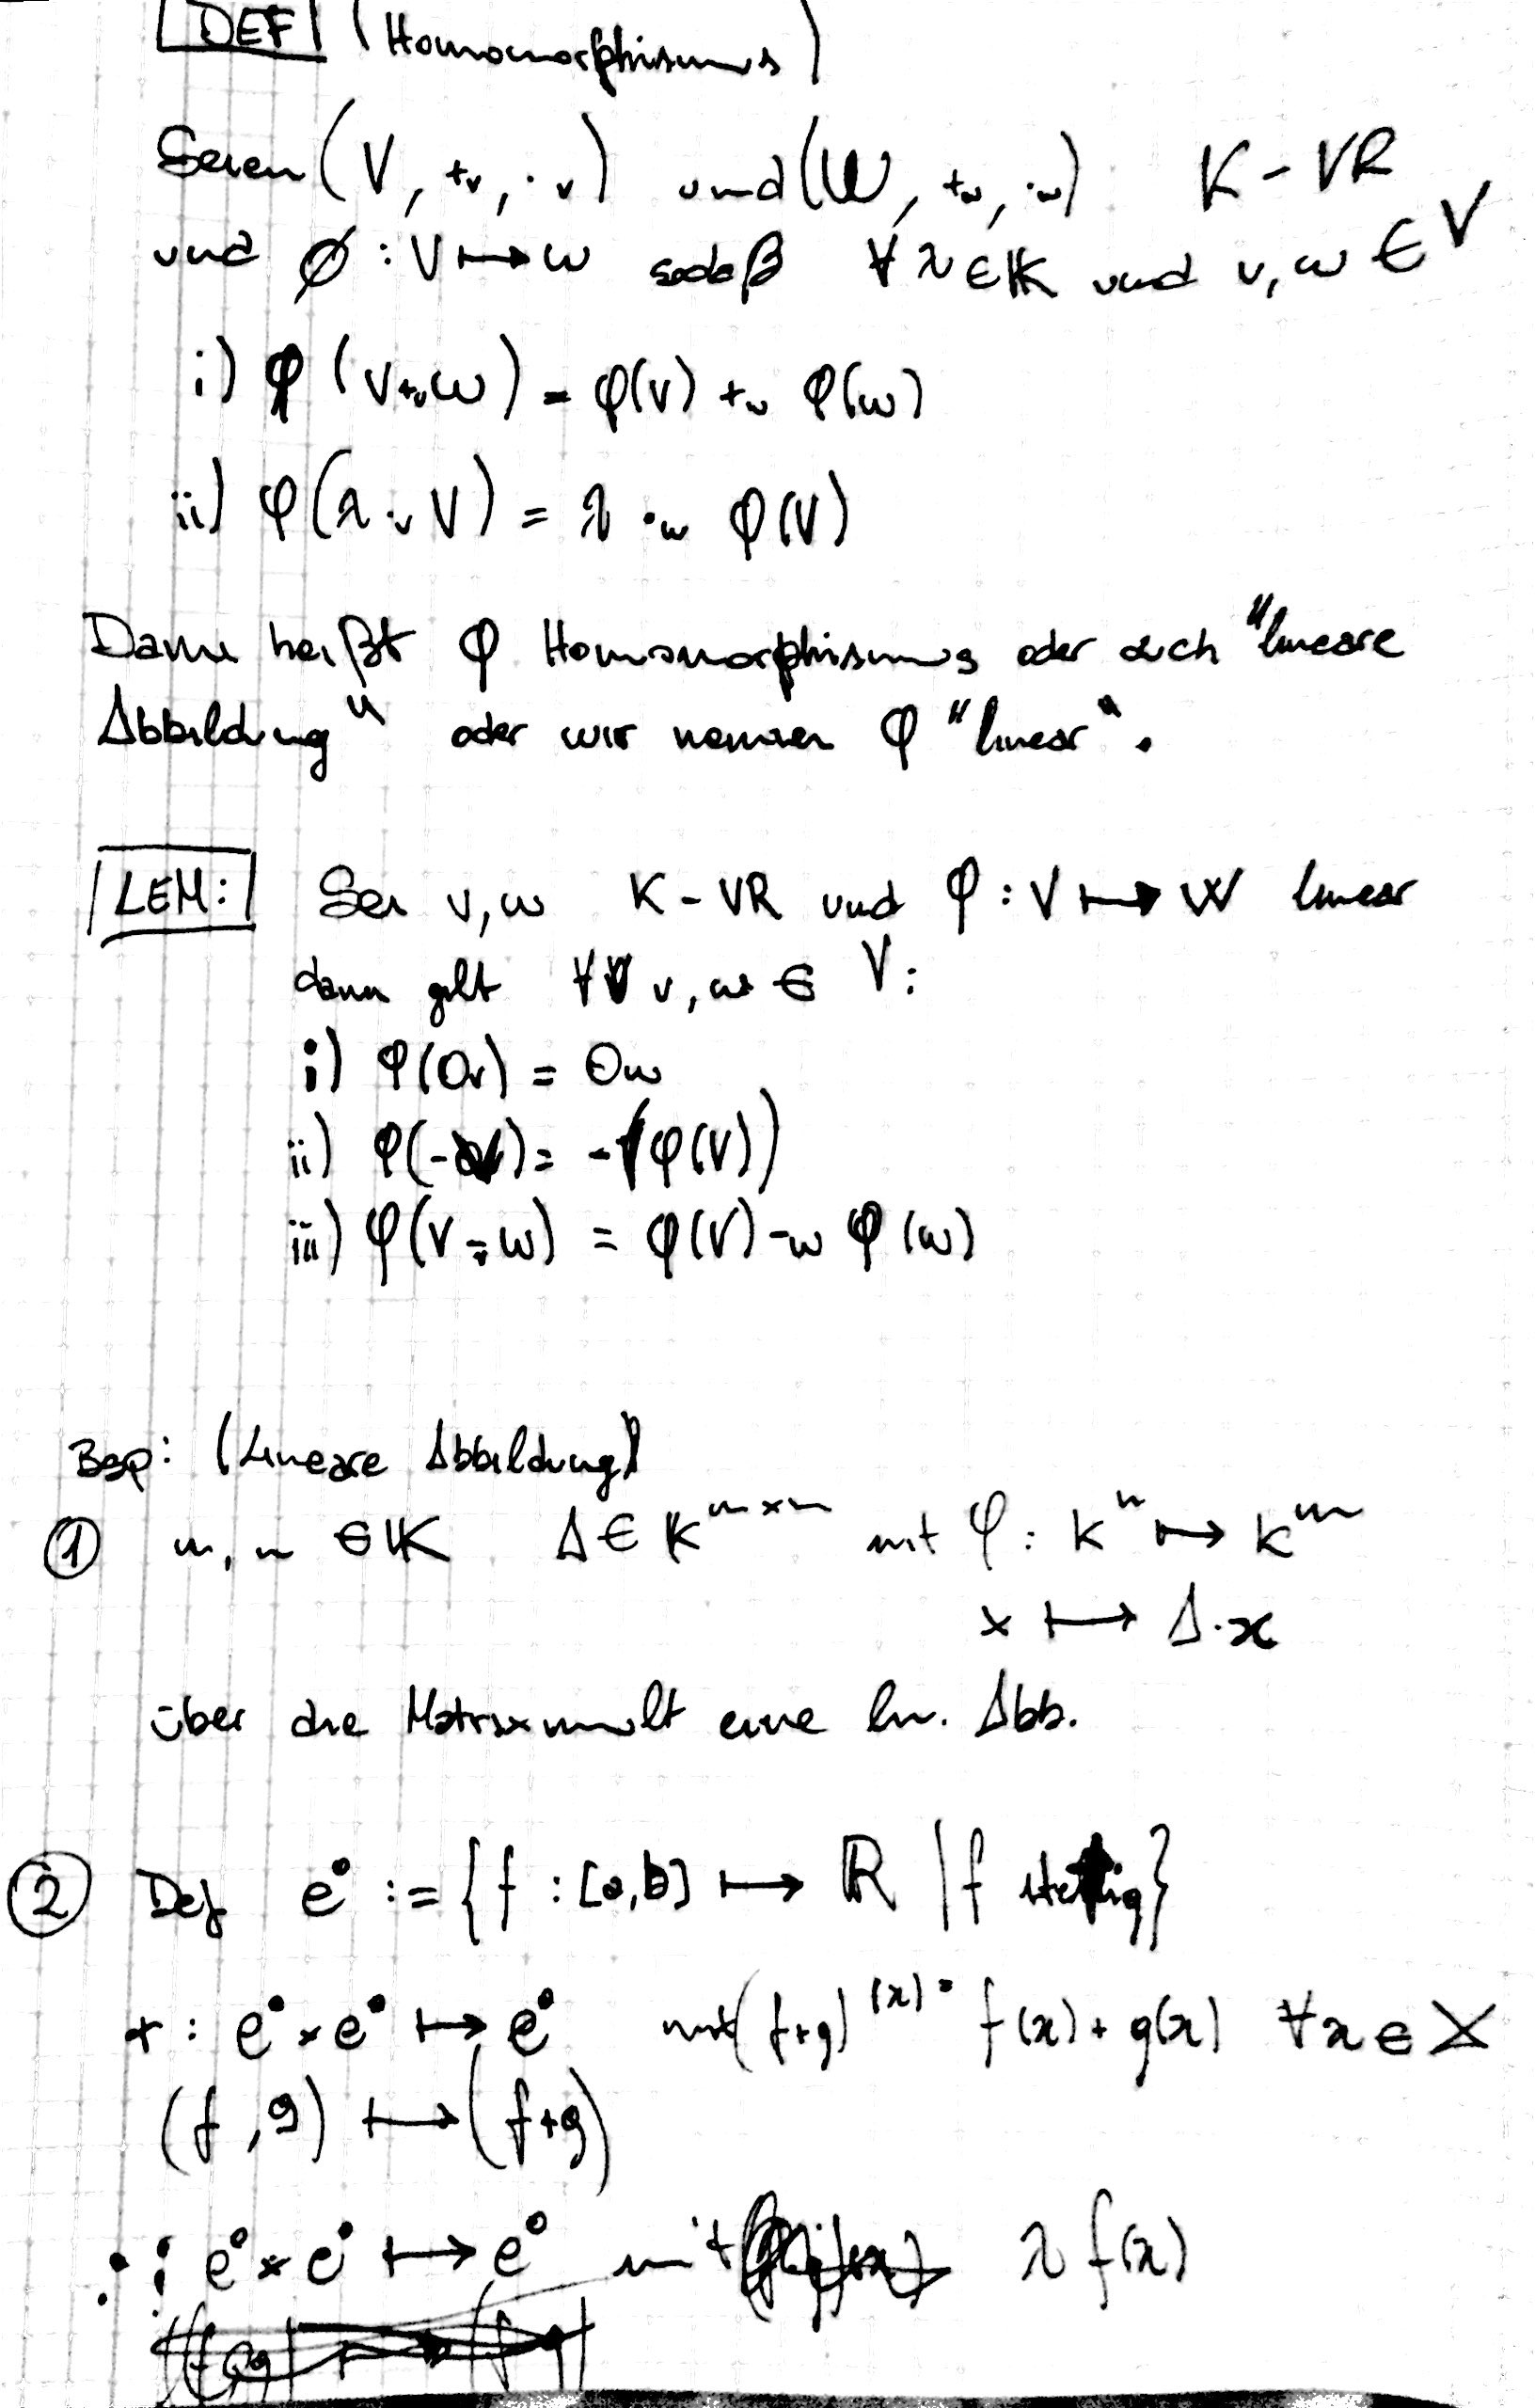 DEF (Homomorphismus)
Seien (V, +ᵥ, ·ᵥ) und (W, +w, ·w) K-VR
und ϕ : V ↦ W sodaß ∀ λ ∈ 𝕂 und v, w ∈ V
i) φ (v +ᵥ w) = φ(v) +w φ(w)
ii) φ(λ ·ᵥ V) = λ ·w φ(V)
Dann heißt φ Homomorphismus oder auch "lineare
Abbildung" oder wir nennen φ "linear".
LEM: Sei v, w K-VR und φ : V ↦ W linear
dann gilt ∀ v, w ∈ V:
i) φ(0ᵥ) = 0w
ii) φ(-v) = -(φ(V))
iii) φ(V -ᵥ w) = φ(V) -w φ(w)
Bsp: (Lineare Abbildung)
① m, n ∈ 𝕂 A ∈ 𝕂ᵐˣⁿ mit φ : Kⁿ ↦ Kᵐ
x ↦ A·x
über die Matrixmult eine lin. Abb.
② Def e⁰ := {f : [a,b] ↦ ℝ | f stetig}
+ : e⁰ × e⁰ ↦ e⁰ mit (f+g)(x) = f(x) + g(x) ∀x ∈ X
(f, g) ↦ (f+g)
· : e⁰ × e⁰ ↦ e⁰ mit λ f(x)